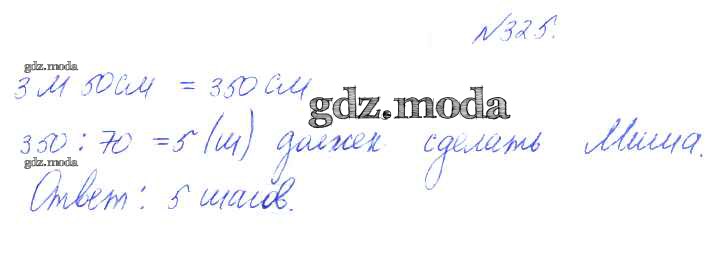 №325.
gdz.moda
3 м 50 см = 350 см
gdz.moda
350 : 70 = 5 (ш) должен сделать Миша.
gdz.moda
Ответ: 5 шагов.